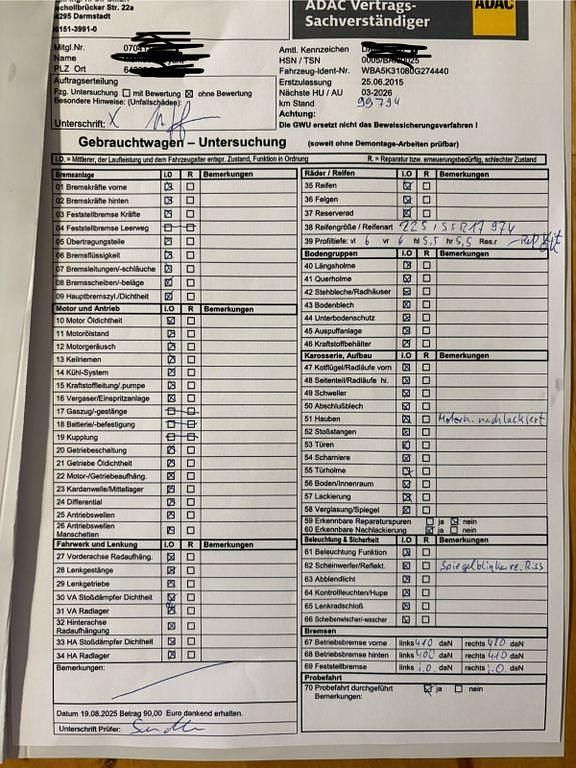 echollbrücker Str. 22a
4295 Darmstadt
6151-3991-0
ADAC Vertrags-
Sachverständiger
ADAC
Mitgl.Nr. 0704
Name
PLZ Ort
Auftragserteilung
Fzg. Untersuchung ☐ mit Bewertung ☒ ohne Bewertung
Besondere Hinweise: (Unfallschäden):
Unterschrift: X
Amtl. Kennzeichen
HSN / TSN
Fahrzeug-Ident-Nr. WBA5K31080G274440
Erstzulassung 25.06.2015
Nächste HU / AU 03-2026
km Stand 99794
Achtung:
Die GWU ersetzt nicht das Beweissicherungsverfahren !
Gebrauchtwagen – Untersuchung (soweit ohne Demontage-Arbeiten prüfbar)
I.O. = Mittlerer, der Laufleistung und dem Fahrzeugalter entspr. Zustand, Funktion in Ordnung R. = Reparatur bzw. erneuerungsbedürftig, schlechter Zustand
Bremsanlage I.O R Bemerkungen
01 Bremskräfte vorne
02 Bremskräfte hinten
03 Feststellbremse Kräfte
04 Feststellbremse Leerweg
05 Übertragungsteile
06 Bremsflüssigkeit
07 Bremsleitungen/-schläuche
08 Bremsscheiben/-beläge
09 Hauptbremszyl./Dichtheit
Motor und Antrieb I.O R Bemerkungen
10 Motor Öldichtheit
11 Motorölstand
12 Motorgeräusch
13 Keilriemen
14 Kühl-System
15 Kraftstoffleitung/.pumpe
16 Vergaser/Einspritzanlage
17 Gaszug/-gestänge
18 Batterie/-befestigung
19 Kupplung
20 Getriebeschaltung
21 Getriebe Öldichtheit
22 Motor-/Getriebeaufhäng.
23 Kardanwelle/Mittellager
24 Differential
25 Antriebswellen
26 Antriebswellen
Manschetten
Fahrwerk und Lenkung I.O R Bemerkungen
27 Vorderachse Radaufhäng.
28 Lenkgestänge
29 Lenkgetriebe
30 VA Stoßdämpfer Dichtheit
31 VA Radlager
32 Hinterachse
Radaufhängung
33 HA Stoßdämpfer Dichtheit
34 HA Radlager
Bemerkungen:
Datum 19.08.2025 Betrag 90,00 Euro dankend erhalten.
Unterschrift Prüfer:
Räder / Reifen I.O R Bemerkungen
35 Reifen
36 Felgen
37 Reserverad
38 Reifengröße / Reifenart 225/55R17 97Y
39 Profiltiefe: vl 6 vr 6 hl 5,5 hr 5,5 Res.r
Bodengruppen I.O R Bemerkungen
40 Längsholme
41 Querholme
42 Stehbleche/Radhäuser
43 Bodenblech
44 Unterbodenschutz
45 Auspuffanlage
46 Kraftstoffbehälter
Karosserie, Aufbau I.O R Bemerkungen
47 Kotflügel/Radläufe vorn
48 Seitenteil/Radläufe hi.
49 Schweller
50 Abschlußblech
51 Hauben Motorh. nachlackiert
52 Stoßstangen
53 Türen
54 Scharniere
55 Türholme
56 Boden/Innenraum
57 Lackierung
58 Verglasung/Spiegel
59 Erkennbare Reparaturspuren ☐ ja ☒ nein
60 Erkennbare Nachlackierung ☒ ja ☐ nein
Beleuchtung & Sicherheit I.O R Bemerkungen
61 Beleuchtung Funktion
62 Scheinwerfer/Reflekt. Spiegelblinker re. Riss
63 Abblendlicht
64 Kontrollleuchten/Hupe
65 Lenkradschloß
66 Scheibenwischer/-wascher
Bremsen
67 Betriebsbremse vorne links 410 daN rechts 420 daN
68 Betriebsbremse hinten links 400 daN rechts 410 daN
69 Feststellbremse links i.O daN rechts i.O. daN
Probefahrt
70 Probefahrt durchgeführt ☒ ja ☐ nein
Bemerkungen: